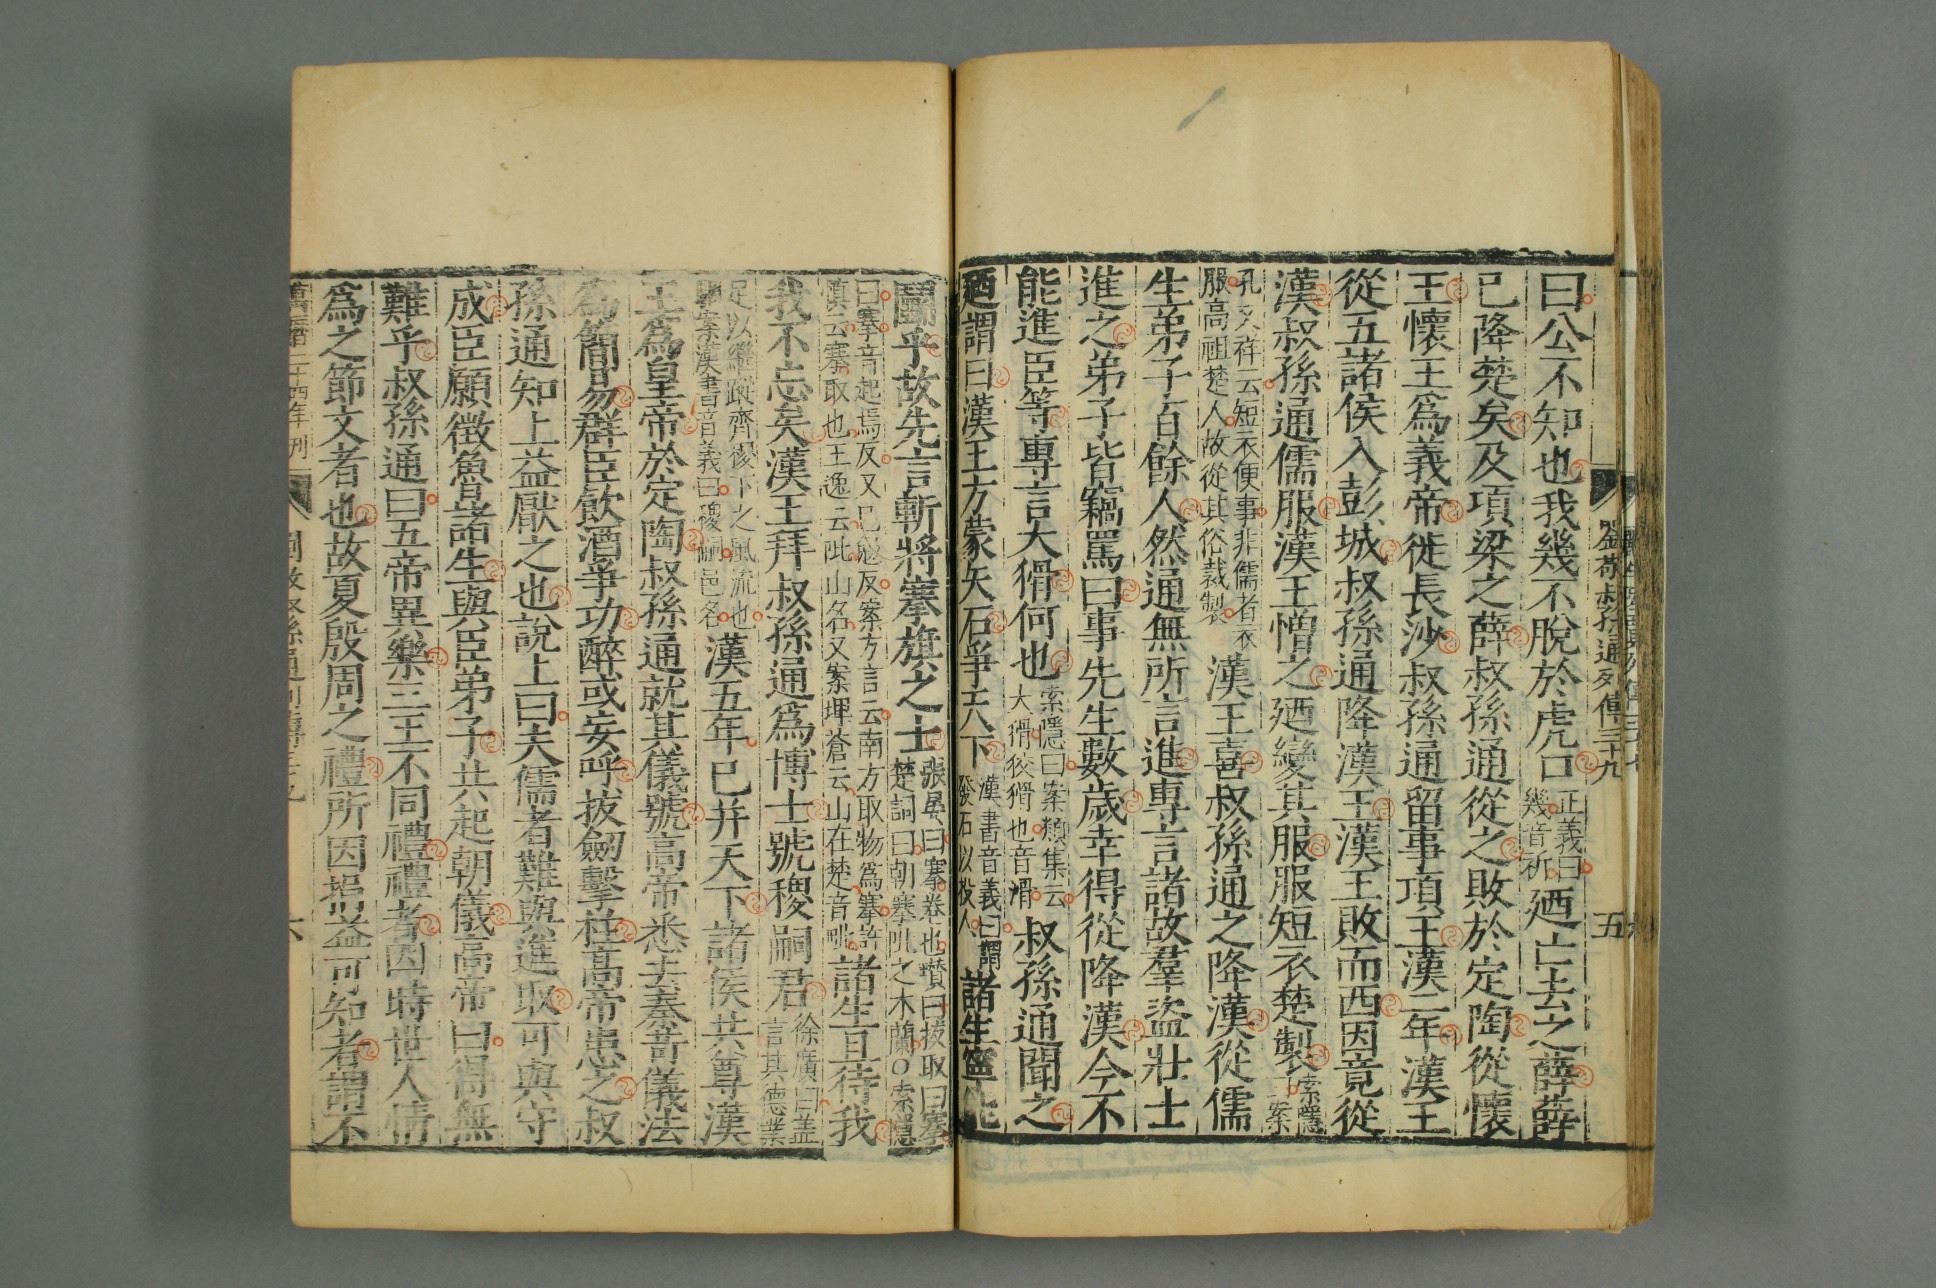 劉敬叔孫通列傳三十九　五
曰公不知也我幾不脫於虎口正義曰幾音祈廼亡去之薛薛
已降楚矣及項梁之薛叔孫通從之敗於定陶從懷
王懷王爲義帝徙長沙叔孫通留事項王漢二年漢王
從五諸侯入彭城叔孫通降漢王漢王敗而西因竟從
漢叔孫通儒服漢王憎之廼變其服服短衣楚製索隱案
孔文祥云短衣便事非儒者衣服高祖楚人故從其俗裁製漢王喜叔孫通之降漢從儒
生弟子百餘人然通無所言進專言諸故羣盜壯士
進之弟子皆竊罵曰事先生數歲幸得從降漢今不
能進臣等專言大猾何也索隱曰案類集云大猾狡猾也音滑叔孫通聞之
廼謂曰漢王方蒙矢石爭天下漢書音義曰謂發石以投人諸生寧能
鬭乎故先言斬將搴旗之士張晏曰搴卷也瓚曰拔取曰搴楚詞曰朝搴阰之木蘭○索隱
曰搴音起焉反又己勉反案方言云南方取物爲搴許慎云搴取也王逸云阰山名又案埤蒼云山在楚音毗諸生且待我
我不忘矣漢王拜叔孫通爲博士號稷嗣君徐廣曰蓋言其德業
足以繼蹤齊稷下之風流也駰案漢書音義曰稷嗣邑名漢五年已并天下諸侯共尊漢
王爲皇帝於定陶叔孫通就其儀號高帝悉去秦苛儀法
爲簡易群臣飲酒爭功醉或妄呼拔劍擊柱高帝患之叔
孫通知上益厭之也說上曰夫儒者難與進取可與守
成臣願徵魯諸生與臣弟子共起朝儀高帝曰得無
難乎叔孫通曰五帝異樂三王不同禮禮者因時世人情
爲之節文者也故夏殷周之禮所因損益可知者謂不
萬曆二十四年刊　劉敬叔孫通列傳三十九　六